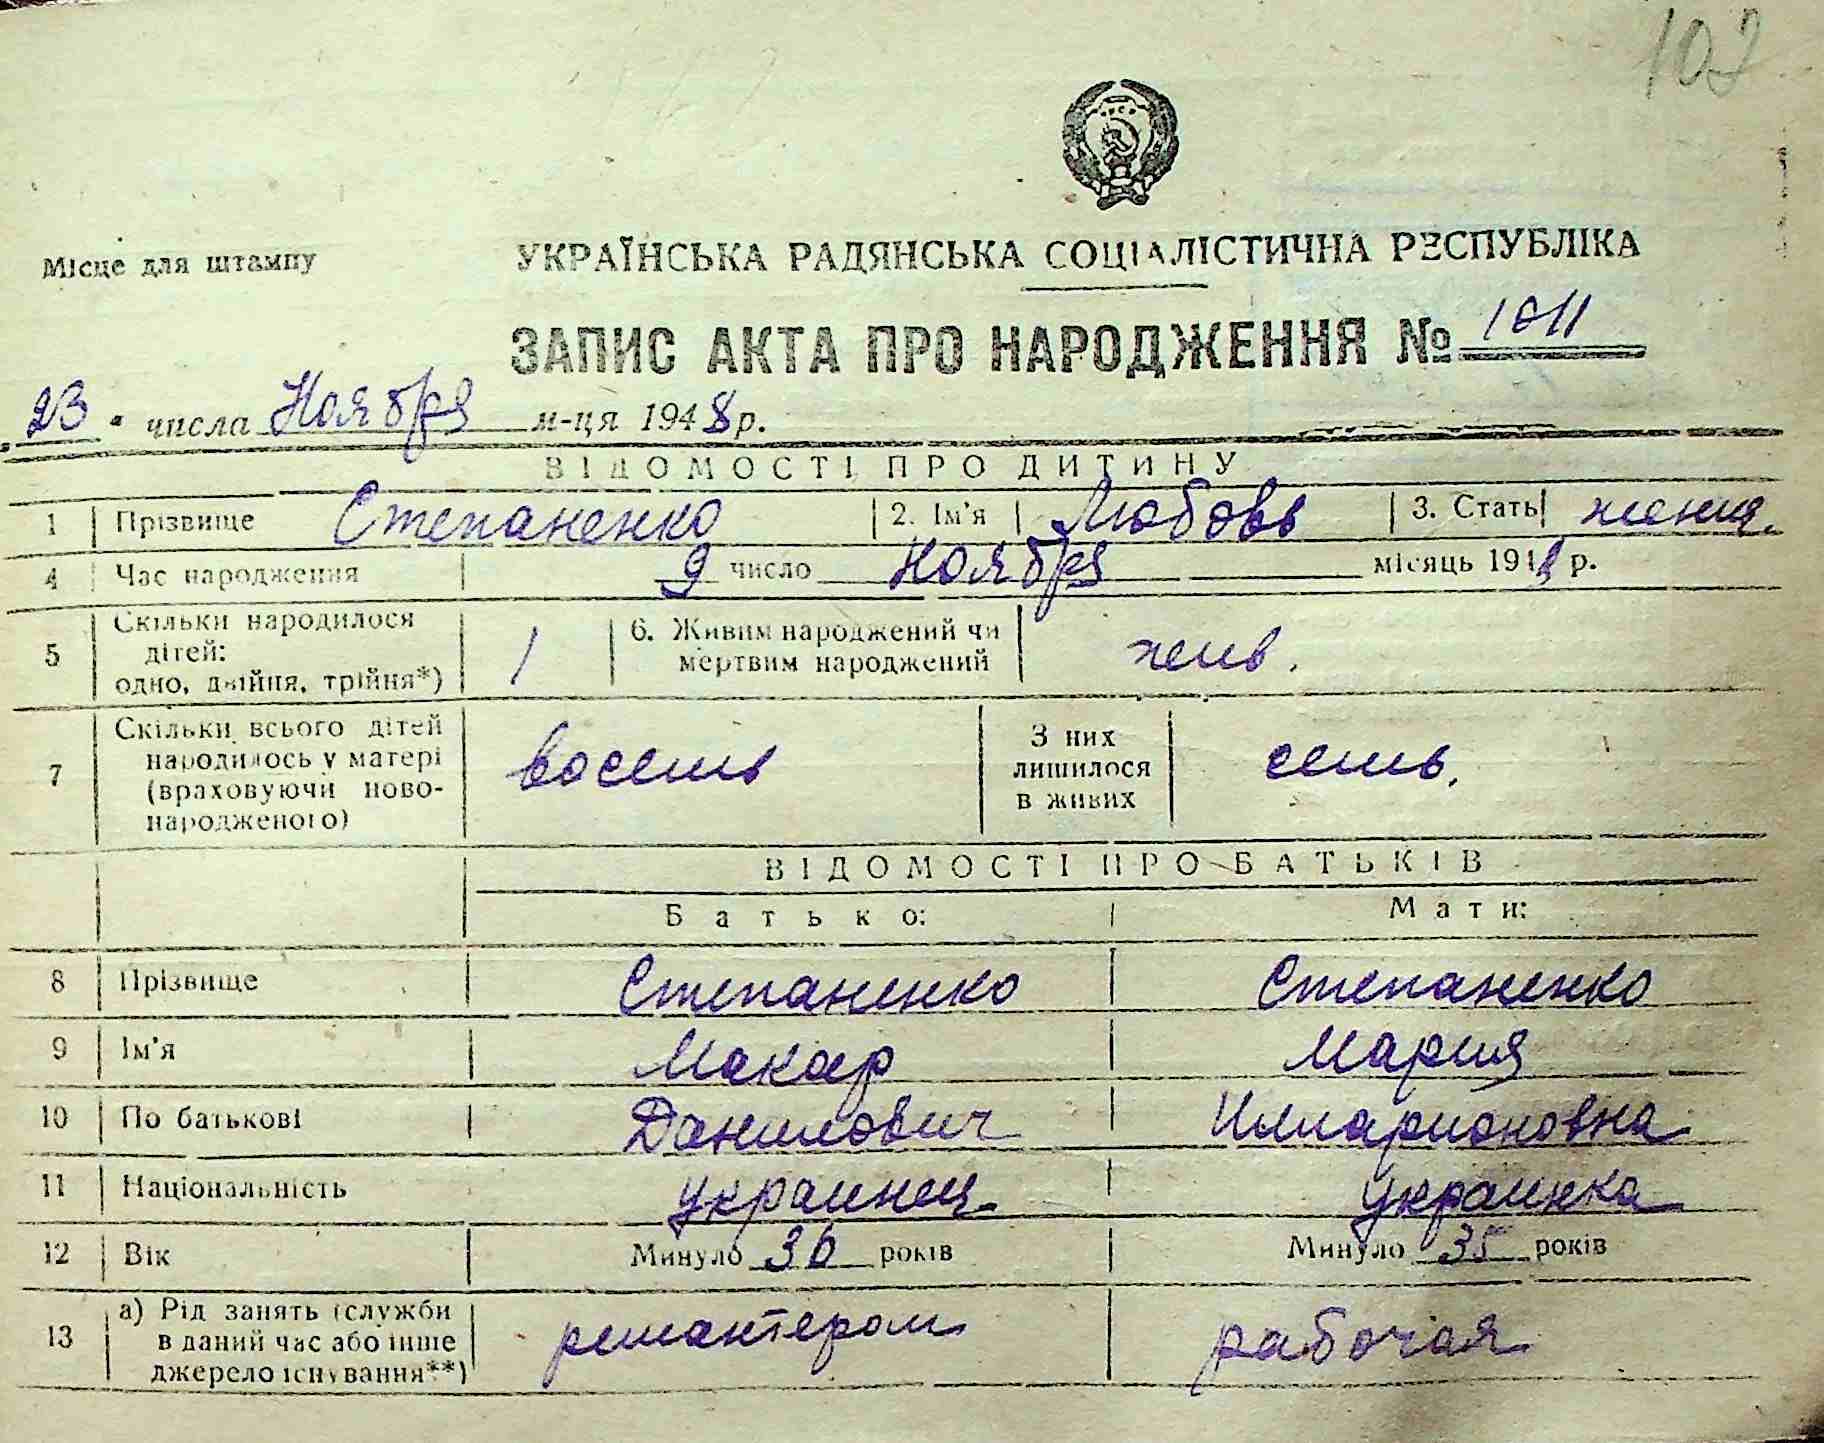 102
Місце для штампу
УКРАЇНСЬКА РАДЯНСЬКА СОЦІАЛІСТИЧНА РЕСПУБЛІКА
ЗАПИС АКТА ПРО НАРОДЖЕННЯ № 1011
„23" числа Ноября м-ця 1948 р.
ВІДОМОСТІ ПРО ДИТИНУ
1 Прізвище Степаненко 2. Ім'я Любовь 3. Стать женск.
4 Час народження 9 число Ноября місяць 1948 р.
5 Скільки народилося дітей: одно, двійня, трійня*) 1 6. Живим народжений чи мертвим народжений жив.
7 Скільки всього дітей народилось у матері (враховуючи ново-народженого) восемь З них лишилося в живих семь.
ВІДОМОСТІ ПРО БАТЬКІВ
Батько: Мати:
8 Прізвище Степаненко Степаненко
9 Ім'я Макар Мария
10 По батькові Данилович Иллларионовна
11 Національність украинец украинка
12 Вік Минуло 36 років Минуло 35 років
13 а) Рід занять (служби в даний час або інше джерело існування**) ремонтером рабочая